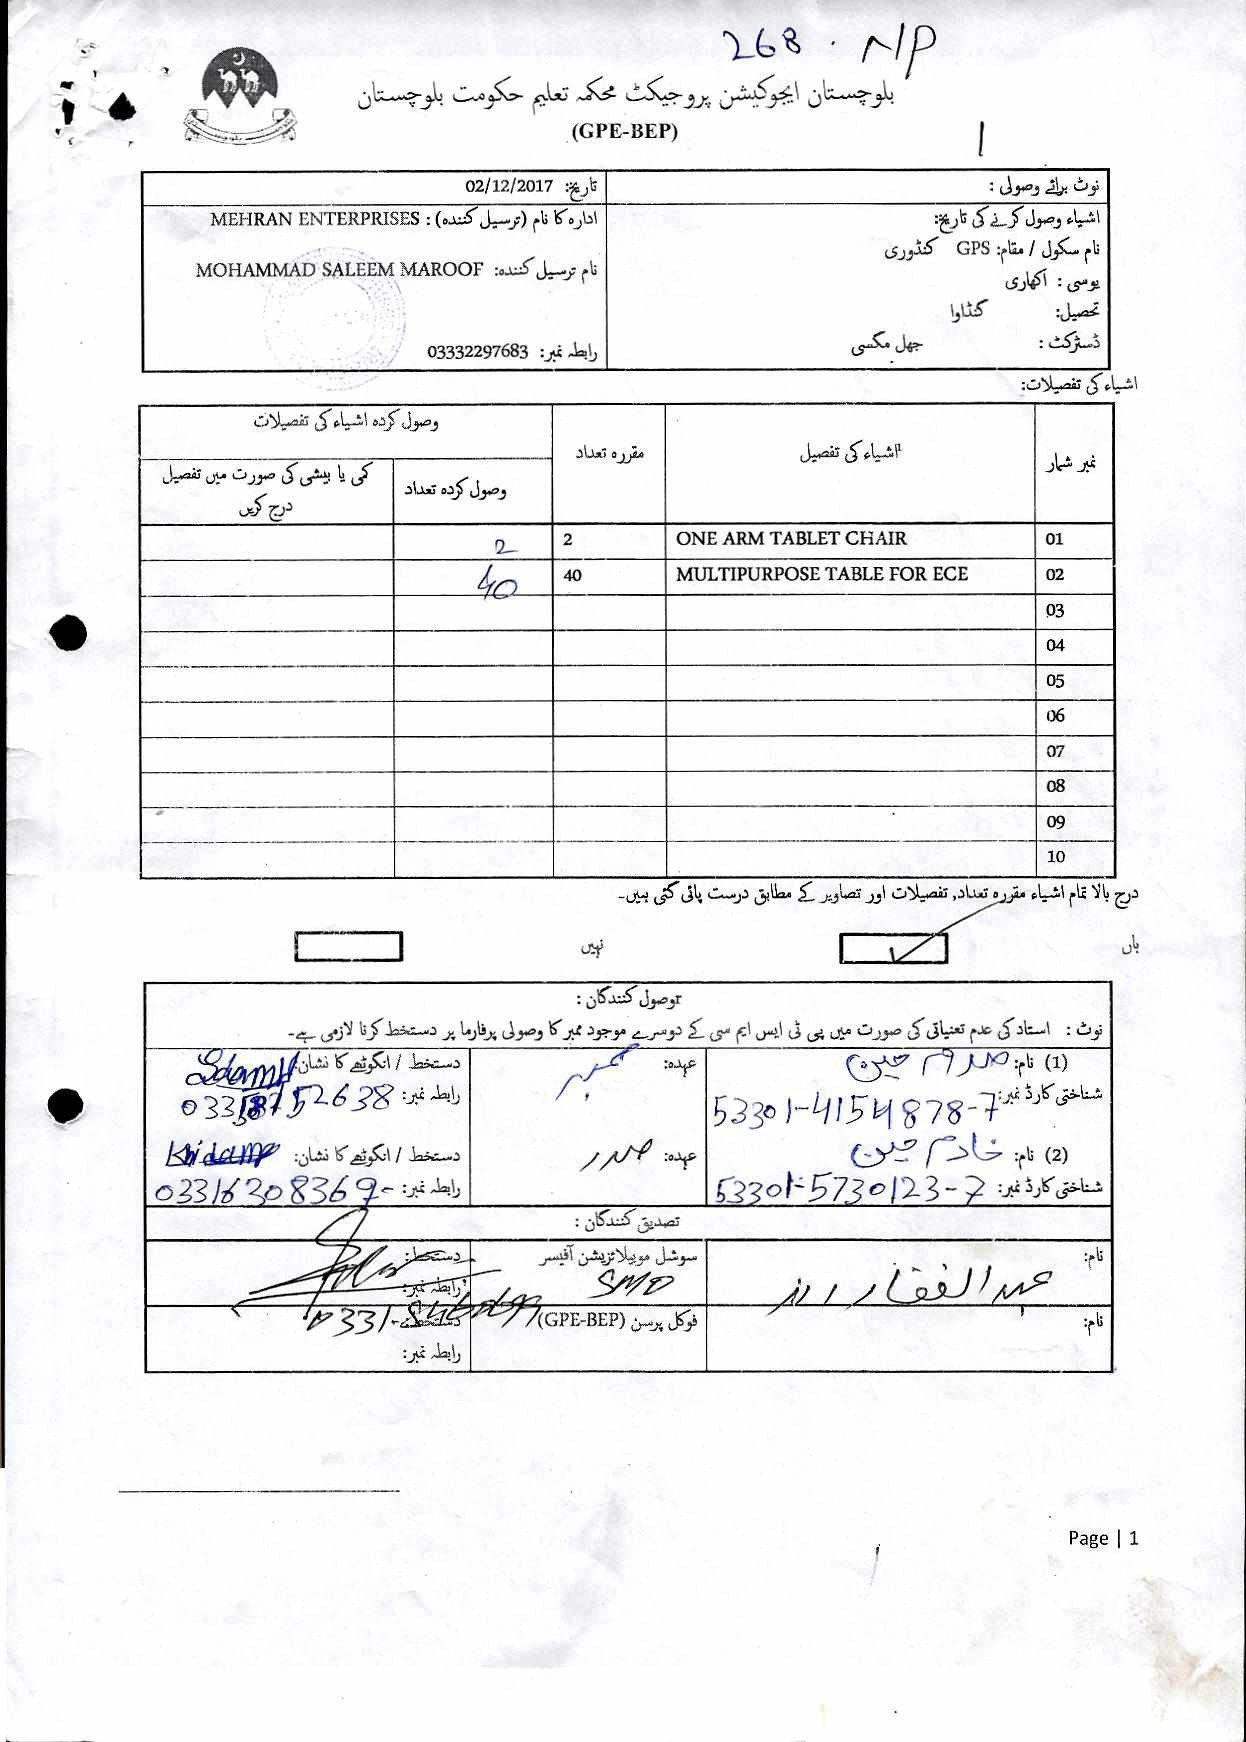 268. N/P
بلوچستان ایجوکیشن پروجیکٹ محکمہ تعلیم حکومت بلوچستان
(GPE-BEP)
1
نوٹ برائے وصولی :
تاریخ: 02/12/2017
اشیاء وصول کرنے کی تاریخ:
نام سکول / مقام: GPS کنڈوری
یوسی : اکھاری
تحصیل: گنڈاوا
ڈسٹرکٹ : جھل مگسی
ادارہ کا نام (ترسیل کنندہ) : MEHRAN ENTERPRISES
نام ترسیل کنندہ: MOHAMMAD SALEEM MAROOF
رابطہ نمبر: 03332297683
اشیاء کی تفصیلات:
نمبر شمار اشیاء کی تفصیل مقررہ تعداد وصول کردہ اشیاء کی تفصیلات
وصول کردہ تعداد کمی یا بیشی کی صورت میں تفصیل درج کریں
01 ONE ARM TABLET CHAIR 2 2
02 MULTIPURPOSE TABLE FOR ECE 40 40
03
04
05
06
07
08
09
10
درج بالا تمام اشیاء مقررہ تعداد, تفصیلات اور تصاویر کے مطابق درست پائی گئی ہیں۔
ہاں نہیں
وصول کنندگان :
نوٹ : استاد کی عدم تعیناتی کی صورت میں پی ٹی ایس ایم سی کے دوسرے موجود ممبر کا وصولی پرفارما پر دستخط کرنا لازمی ہے۔
(1) نام: حسین عہدہ: ممبر دستخط / انگوٹھے کا نشان:
شناختی کارڈ نمبر: 53301-4154878-7 رابطہ نمبر:
(2) نام: خادم حسین عہدہ: صدر دستخط / انگوٹھے کا نشان:
شناختی کارڈ نمبر: 53301-5730123-7 رابطہ نمبر: 03316308369
تصدیق کنندگان :
نام: عبدالغفار سوشل موبیلائزیشن آفیسر SMO دستخط:
رابطہ نمبر: 0331-
نام: فوکل پرسن (GPE-BEP) دستخط:
رابطہ نمبر:
Page | 1